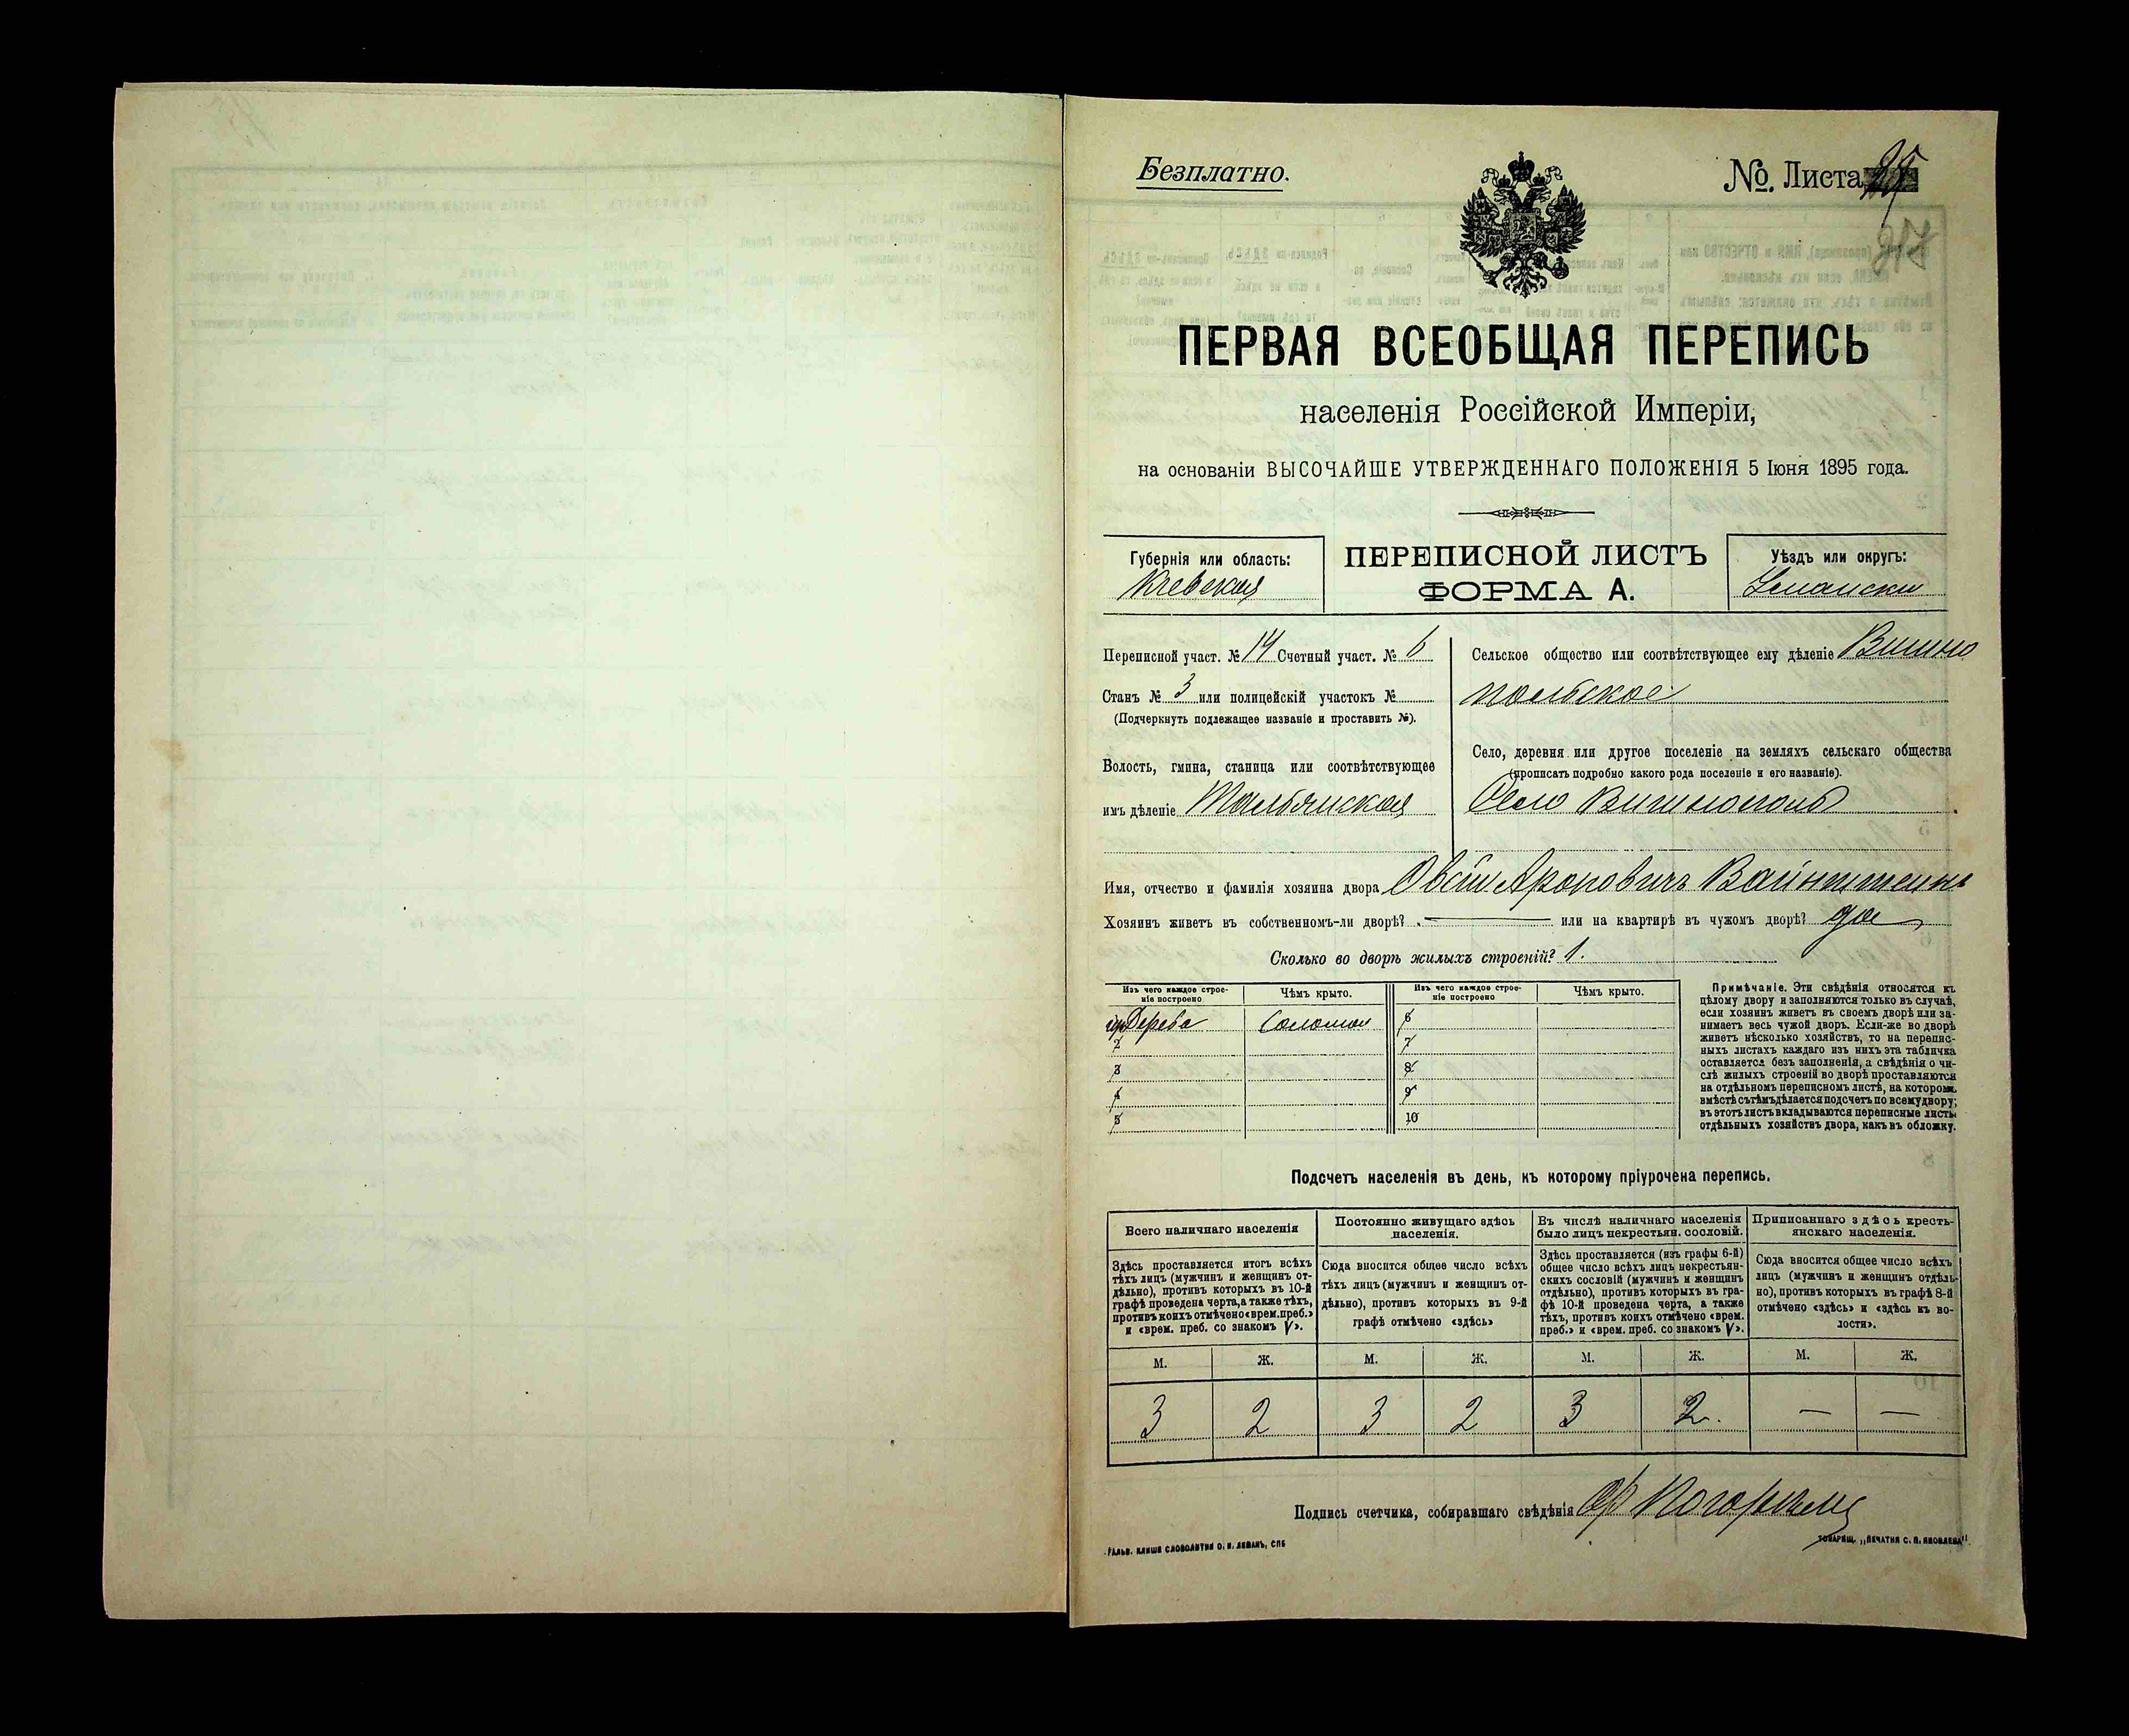 Безплатно.
№. Листа
ПЕРВАЯ ВСЕОБЩАЯ ПЕРЕПИСЬ
населенія Россійской Имперіи,
на основаніи ВЫСОЧАЙШЕ УТВЕРЖДЕННАГО ПОЛОЖЕНІЯ 5 Іюня 1895 года.
Губернія или область:
Кіевская
ПЕРЕПИСНОЙ ЛИСТЪ
ФОРМА А.
Уѣздъ или округъ:
Умански
Переписной участ. № 14 Счетный участ. № 6
Станъ № 3 или полицейскій участокъ №
(Подчеркнуть подлежащее названіе и проставить №).
Волость, гмина, станица или соотвѣтствующее
имъ дѣленіе Тальянская
Сельское общество или соотвѣтствующее ему дѣленіе Вишно
польское
Село, деревня или другое поселеніе на земляхъ сельскаго общества
(прописать подробно какого рода поселеніе и его названіе).
Село Вишнополь
Имя, отчество и фамилія хозяина двора Овсій Ароновичъ Вайнштейнъ
Хозяинъ живетъ въ собственномъ-ли дворѣ? — или на квартирѣ въ чужомъ дворѣ? да
Сколько во дворѣ жилыхъ строеній? 1.
Изъ чего каждое строе-
ніе построено
Чѣмъ крыто.
Изъ чего каждое строе-
ніе построено
Чѣмъ крыто.
Дерева Солома 6
2 7
3 8
4 9
5 10
Примѣчаніе. Эти свѣдѣнія относятся къ
цѣлому двору и заполняются только въ случаѣ,
если хозяинъ живетъ въ своемъ дворѣ или за-
нимаетъ весь чужой дворъ. Если-же во дворѣ
живетъ нѣсколько хозяйствъ, то на перепис-
ныхъ листахъ каждаго изъ нихъ эта табличка
оставляется безъ заполненія, а свѣдѣнія о чи-
слѣ жилыхъ строеній во дворѣ проставляются
на отдѣльномъ переписномъ листѣ, на которомъ,
вмѣстѣ съ тѣмъ дѣлается подсчетъ по всему двору;
въ этотъ листъ вкладываются переписные листы
отдѣльныхъ хозяйствъ двора, какъ въ обложку.
Подсчетъ населенія въ день, къ которому пріурочена перепись.
Всего наличнаго населенія
Здѣсь проставляется итогъ всѣхъ
тѣхъ лицъ (мужчинъ и женщинъ от-
дѣльно), противъ которыхъ въ 10-й
графѣ проведена черта, а также тѣхъ,
противъ коихъ отмѣчено «врем. преб.»
и «врем. преб. со знакомъ V».
Постоянно живущаго здѣсь
населенія.
Сюда вносится общее число всѣхъ
тѣхъ лицъ (мужчинъ и женщинъ от-
дѣльно), противъ которыхъ въ 9-й
графѣ отмѣчено «здѣсь»
Въ числѣ наличнаго населенія
было лицъ некрестьян. сословій.
Здѣсь проставляется (изъ графы 6-й)
общее число всѣхъ лицъ некрестьян-
скихъ сословій (мужчинъ и женщинъ
отдѣльно), противъ которыхъ въ гра-
фѣ 10-й проведена черта, а также
тѣхъ, противъ коихъ отмѣчено «врем.
преб.» и «врем. преб. со знакомъ V».
Приписаннаго здѣсь кресть-
янскаго населенія.
Сюда вносится общее число всѣхъ
лицъ (мужчинъ и женщинъ отдѣль-
но), противъ которыхъ въ графѣ 8-й
отмѣчено «здѣсь» и «здѣсь въ во-
лости».
М. Ж. М. Ж. М. Ж. М. Ж.
3 2 3 2 3 2. — —
Подпись счетчика, собиравшаго свѣдѣнія
Гальв. клише словолитни О. И. Леманъ, СПБ
Товарищ. „Печатня С. П. Яковлева".